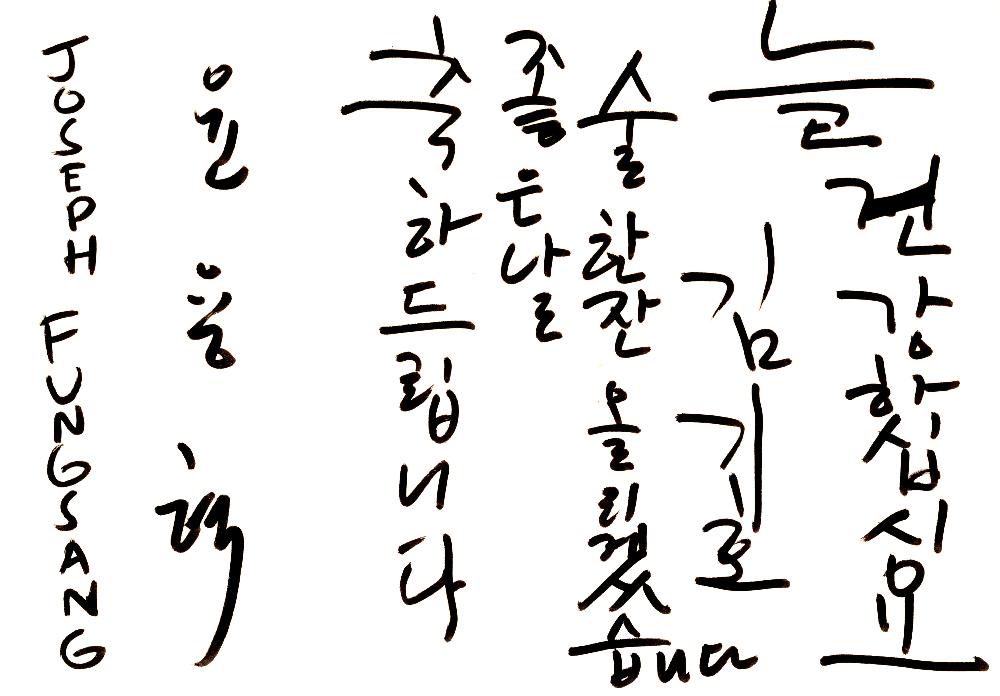 JOSEPH FUNGSANG
윤웅혁
축하드립니다
좋은날
술 한잔 올리겠습니다
김기호
늘 건강하십시요